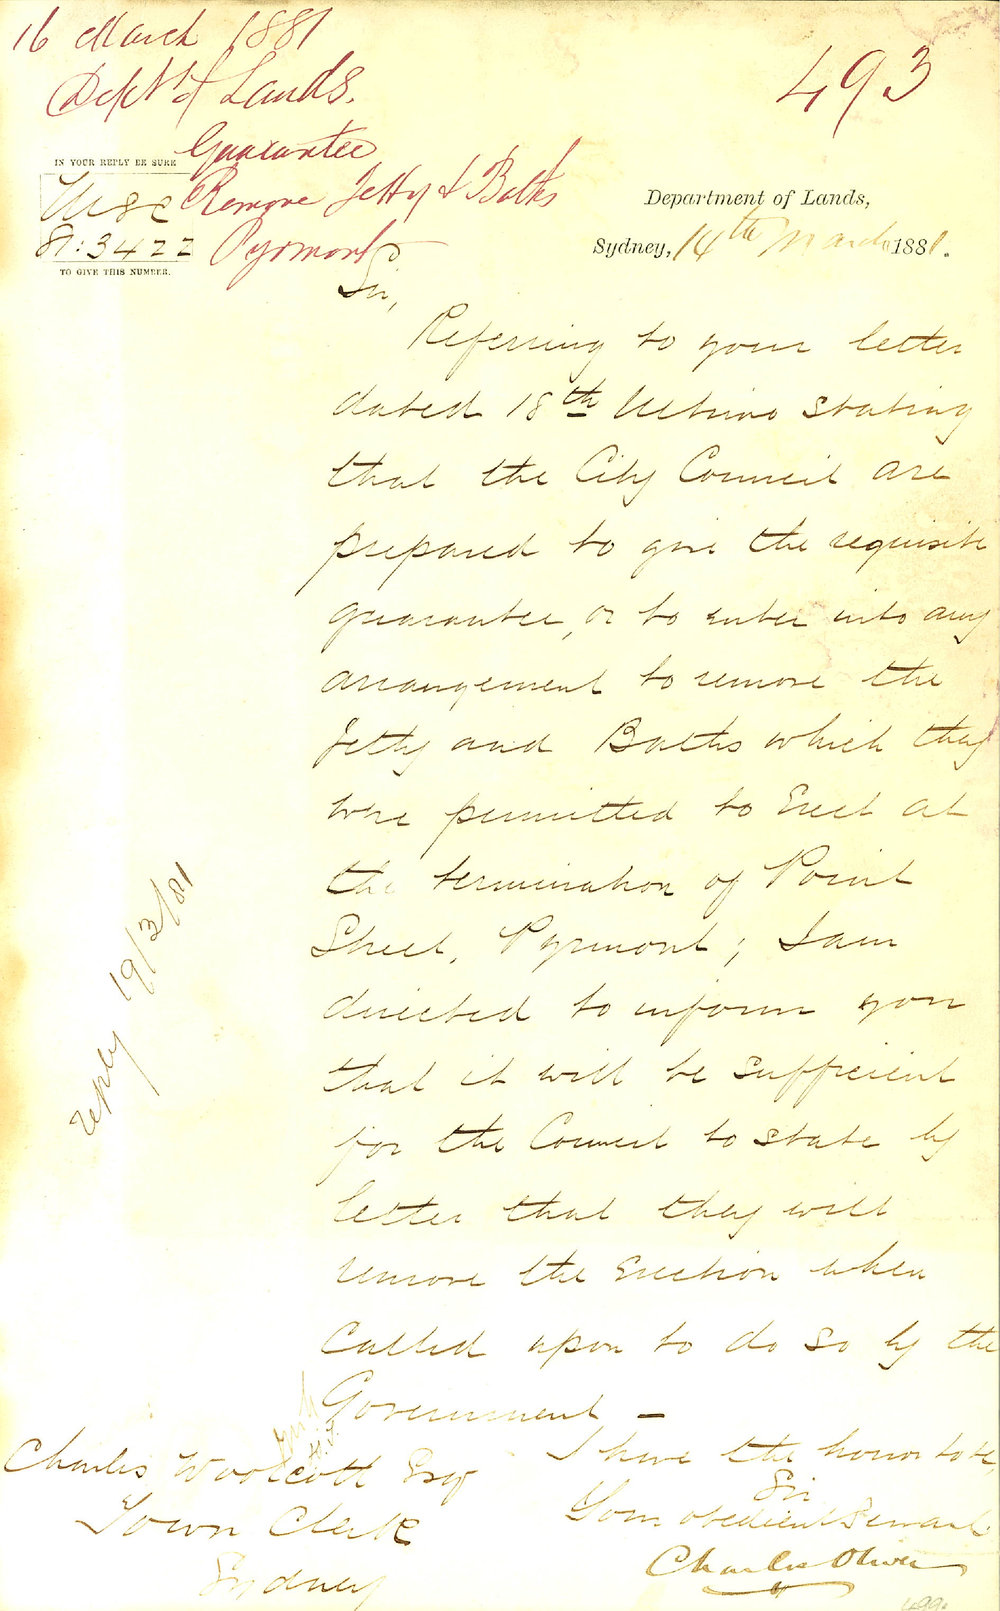 16 March 1881
Dept of Lands.
493
Guarantee
Remove Jetty & Baths
Pyrmont
IN YOUR REPLY BE SURE
Misc
81:3422
TO GIVE THIS NUMBER.
Department of Lands,
Sydney, 14th March 1881.
Sir,
Referring to your letter
dated 18th Ultimo stating
that the City Council are
prepared to give the requisite
guarantee, or to enter into any
arrangement to remove the
Jetty and Baths which they
were permitted to Erect at
the termination of Point
Street, Pyrmont; I am
directed to inform you
that it will be sufficient
for the Council to state by
letter that they will
remove the Erection when
Called upon to do so by the
Government –
I have the honor to be,
Sir
Your obedient Servant
Charles Oliver
Charles Woolcott Esq
Town Clerk
Sydney
reply 19/3/81